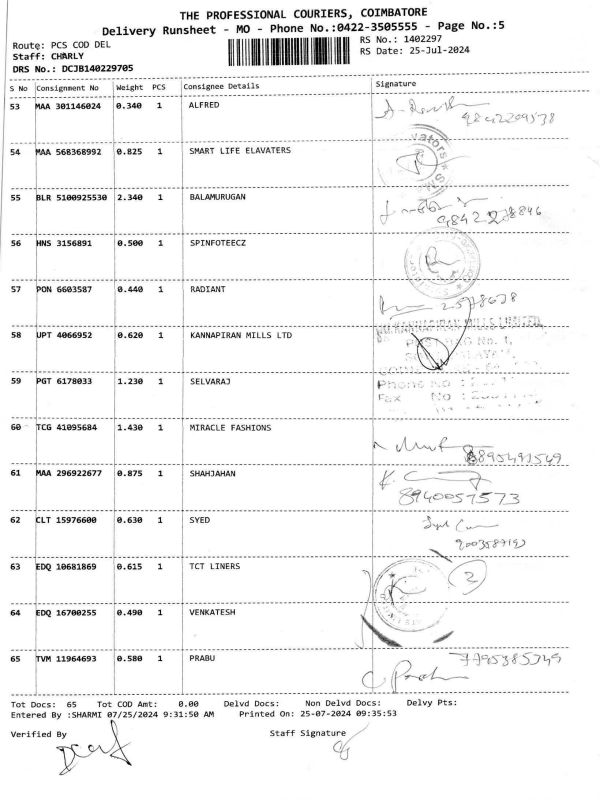 THE PROFESSIONAL COURIERS, COIMBATORE
Delivery Runsheet - MO - Phone No.:0422-3505555 - Page No.:5
Route: PCS COD DEL
RS No.: 1402297
Staff: CHARLY
RS Date: 25-Jul-2024
DRS No.: DCJB140229705
S No Consignment No Weight PCS Consignee Details Signature
53 MAA 301146024 0.340 1 ALFRED
9842209578
54 MAA 568368992 0.825 1 SMART LIFE ELAVATERS
vators
55 BLR 5100925530 2.340 1 BALAMURUGAN
56 HNS 3156891 0.500 1 SPINFOTEECZ
57 PON 6603587 0.440 1 RADIANT
2578678
58 UPT 4066952 0.620 1 KANNAPIRAN MILLS LTD
KANNAPIRAN MILLS LIMITED
59 PGT 6178033 1.230 1 SELVARAJ
Phone No :
Fax No :
60 TCG 41095684 1.430 1 MIRACLE FASHIONS
8895491549
61 MAA 296922677 0.875 1 SHAHJAHAN
8940057573
62 CLT 15976600 0.630 1 SYED
63 EDQ 10681869 0.615 1 TCT LINERS
2
64 EDQ 16700255 0.490 1 VENKATESH
65 TVM 11964693 0.580 1 PRABU
7795385349
Tot Docs: 65 Tot COD Amt: 0.00 Delvd Docs: Non Delvd Docs: Delvy Pts:
Entered By :SHARMI 07/25/2024 9:31:50 AM Printed On: 25-07-2024 09:35:53
Verified By Staff Signature